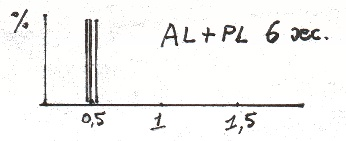 % AL+PL 6 sec.
0,5 1 1,5